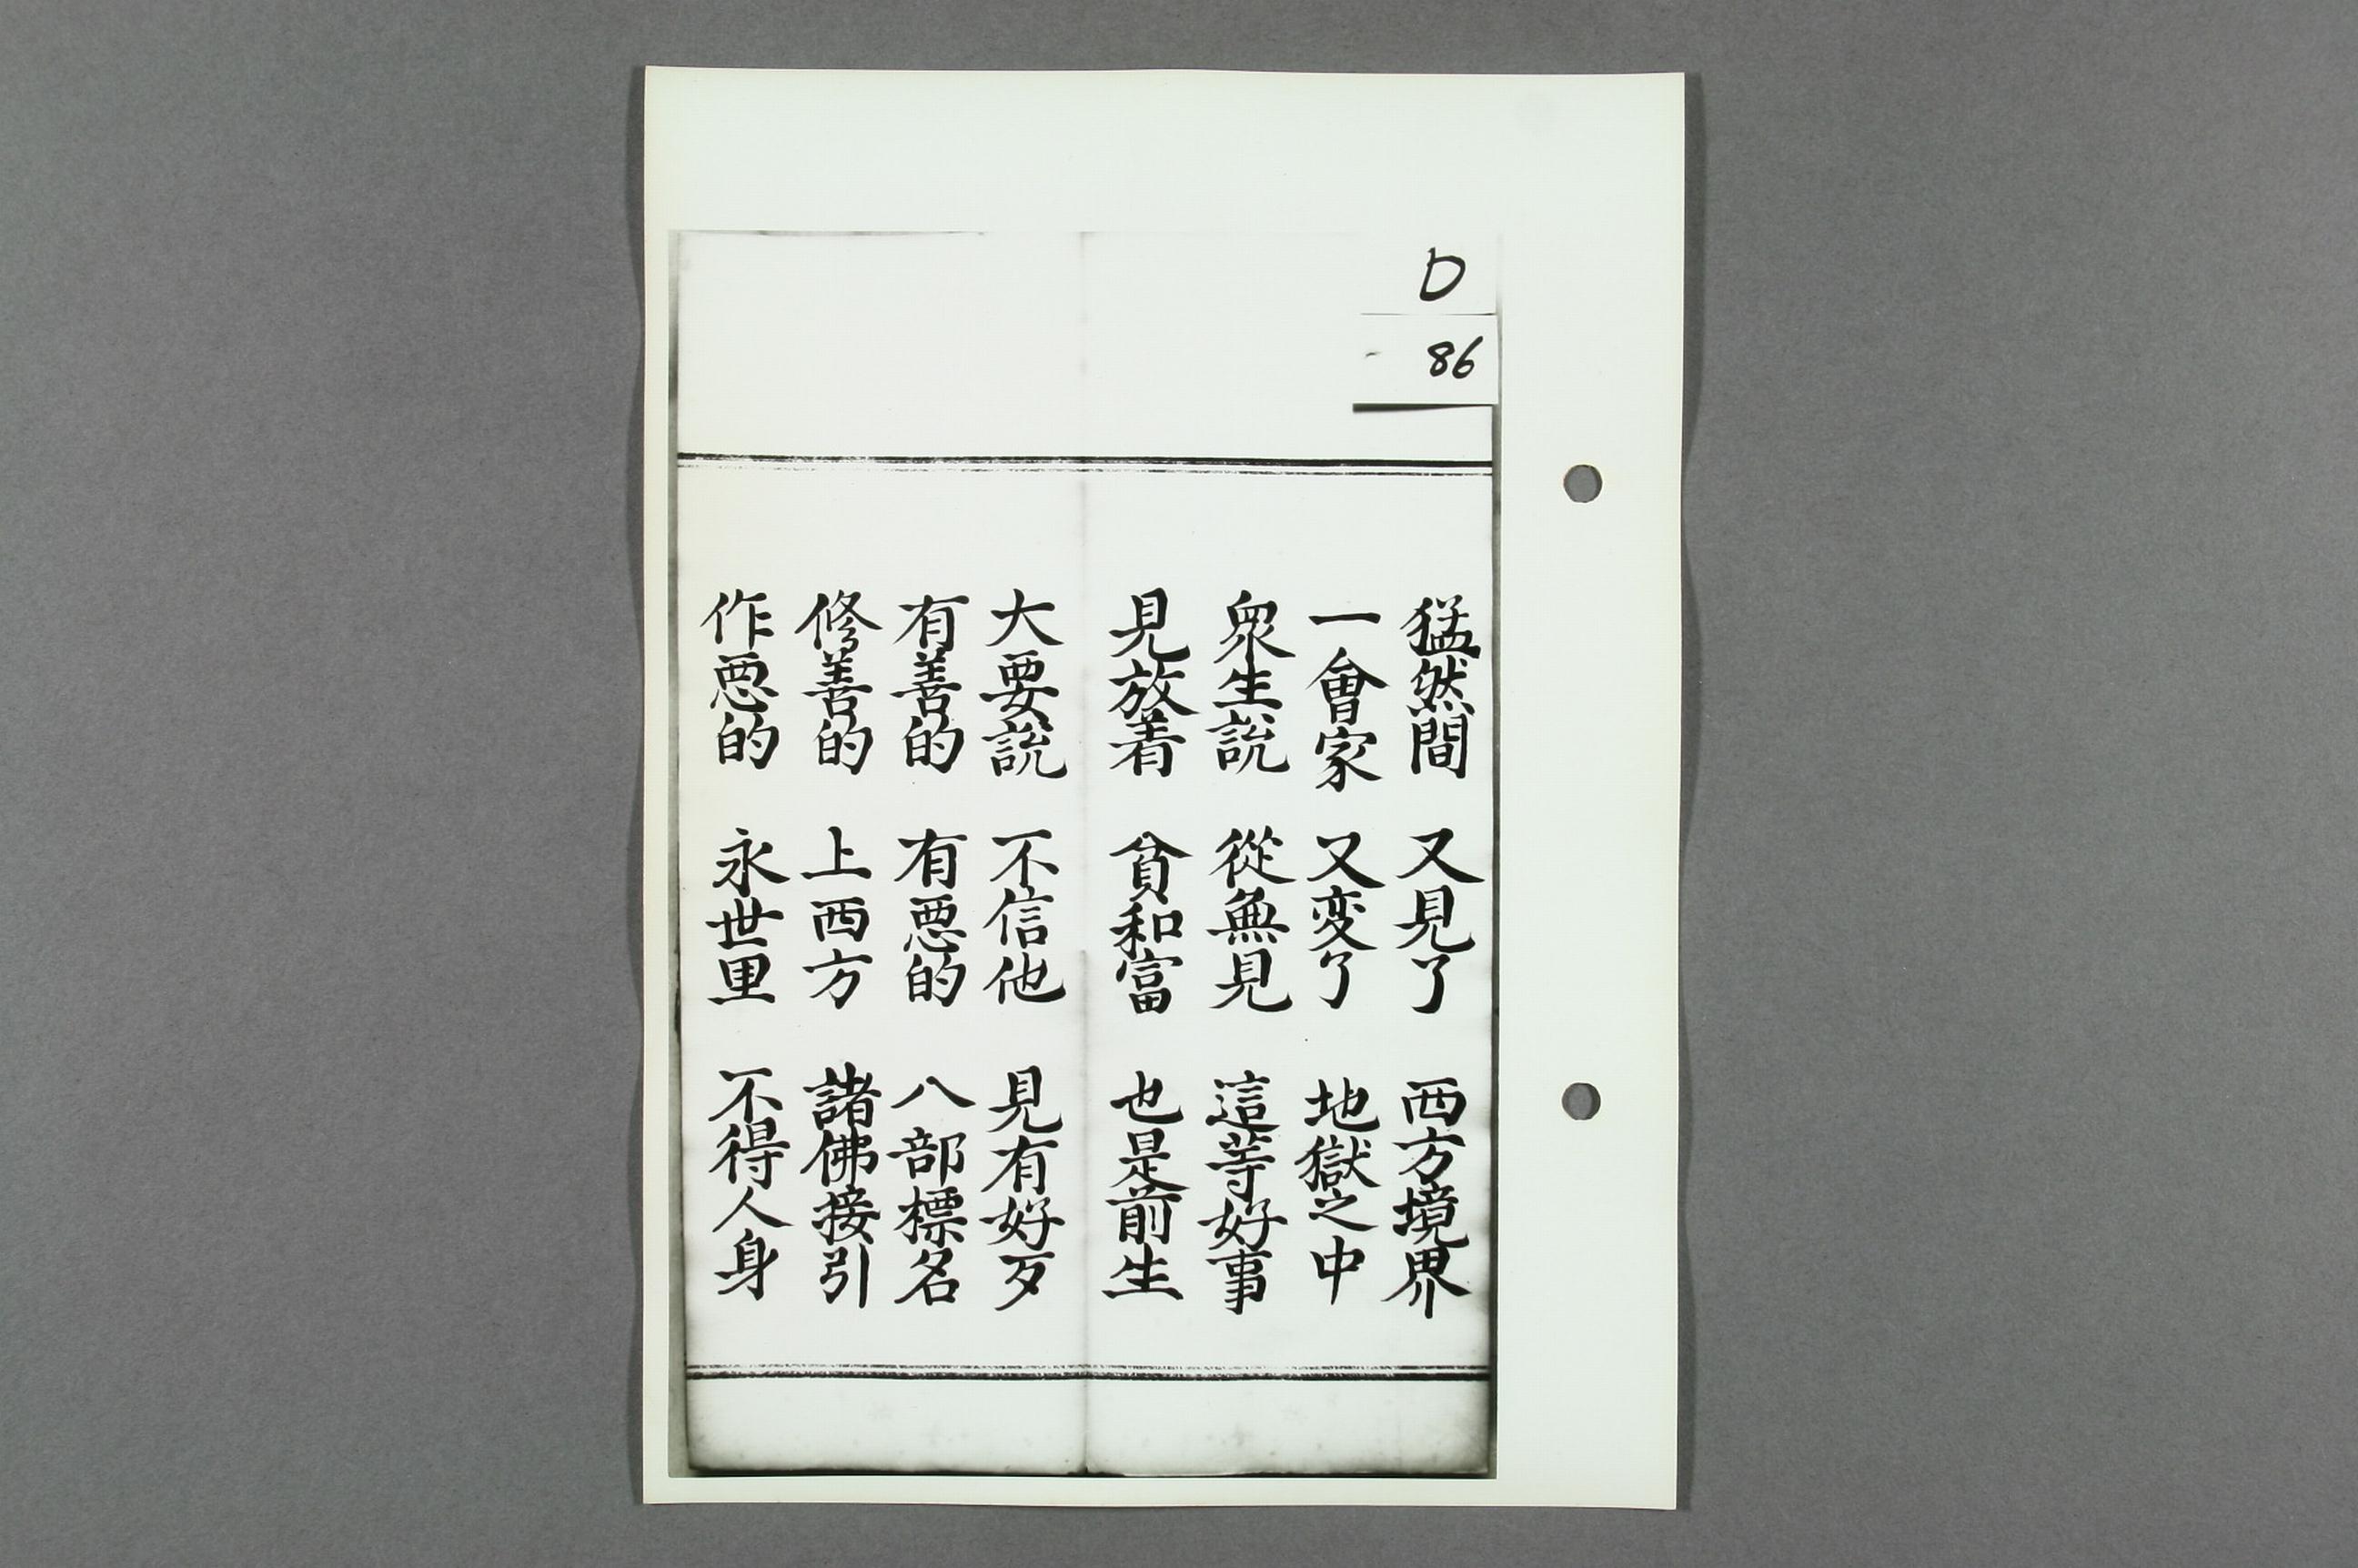 D
86
猛然間 又見了 西方境界
一會家 又変了 地獄之中
衆生說 從無見 這等好事
見放着 貧和富 也是前生
大要説 不信他 見有好歹
有善的 有悪的 八部標名
修善的 上西方 諸佛接引
作悪的 永世里 不得人身